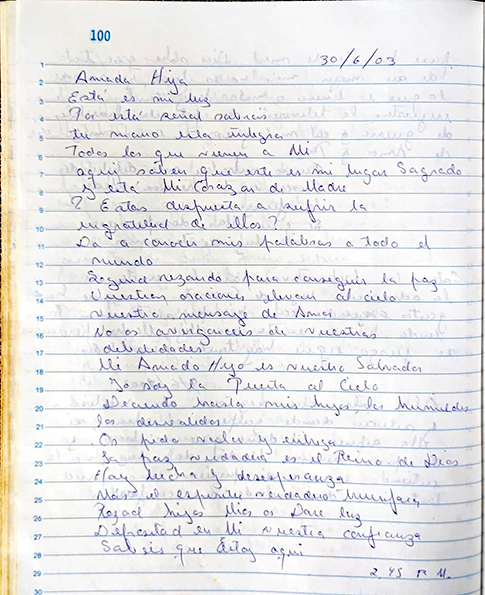 100
30/6/03
1
2
Amada Hija
3
Esta es mi luz
4
Por esta señal sabrás
5
tu mano esta integra
6
Todos los que vienen a Mi
7
aqui saben que este es mi lugar Sagrado
8
y está Mi Corazon de Madre
9
? Estas despuesta a sufrir la
10
ingratitud de ellos?
11
Da a conocer mis palabras a todo el
12
mundo
13
Seguid rezando para conseguir la paz
14
Vuestras oraciones elevan al cielo
15
vuestro mensaje de Amor
16
No os avergonceis de vuestras
17
debilidades
18
Mi Amado Hijo es vuestro Salvador
19
Yo soy la Puerta al Cielo
20
Deciendo hasta mis hijos los humildes
21
los desvalidos
22
Os pido valor y entrega
23
La paz verdadera es el Reino de Dios
24
Hay lucha y desesperanza
25
Mas el espiritu verdadero triunfara
26
Rezad hijos Mios os Dare luz
27
Depositad en Mi vuestra confianza
28
Sabeis que Estoy aqui
29
2.45 P.M.
30